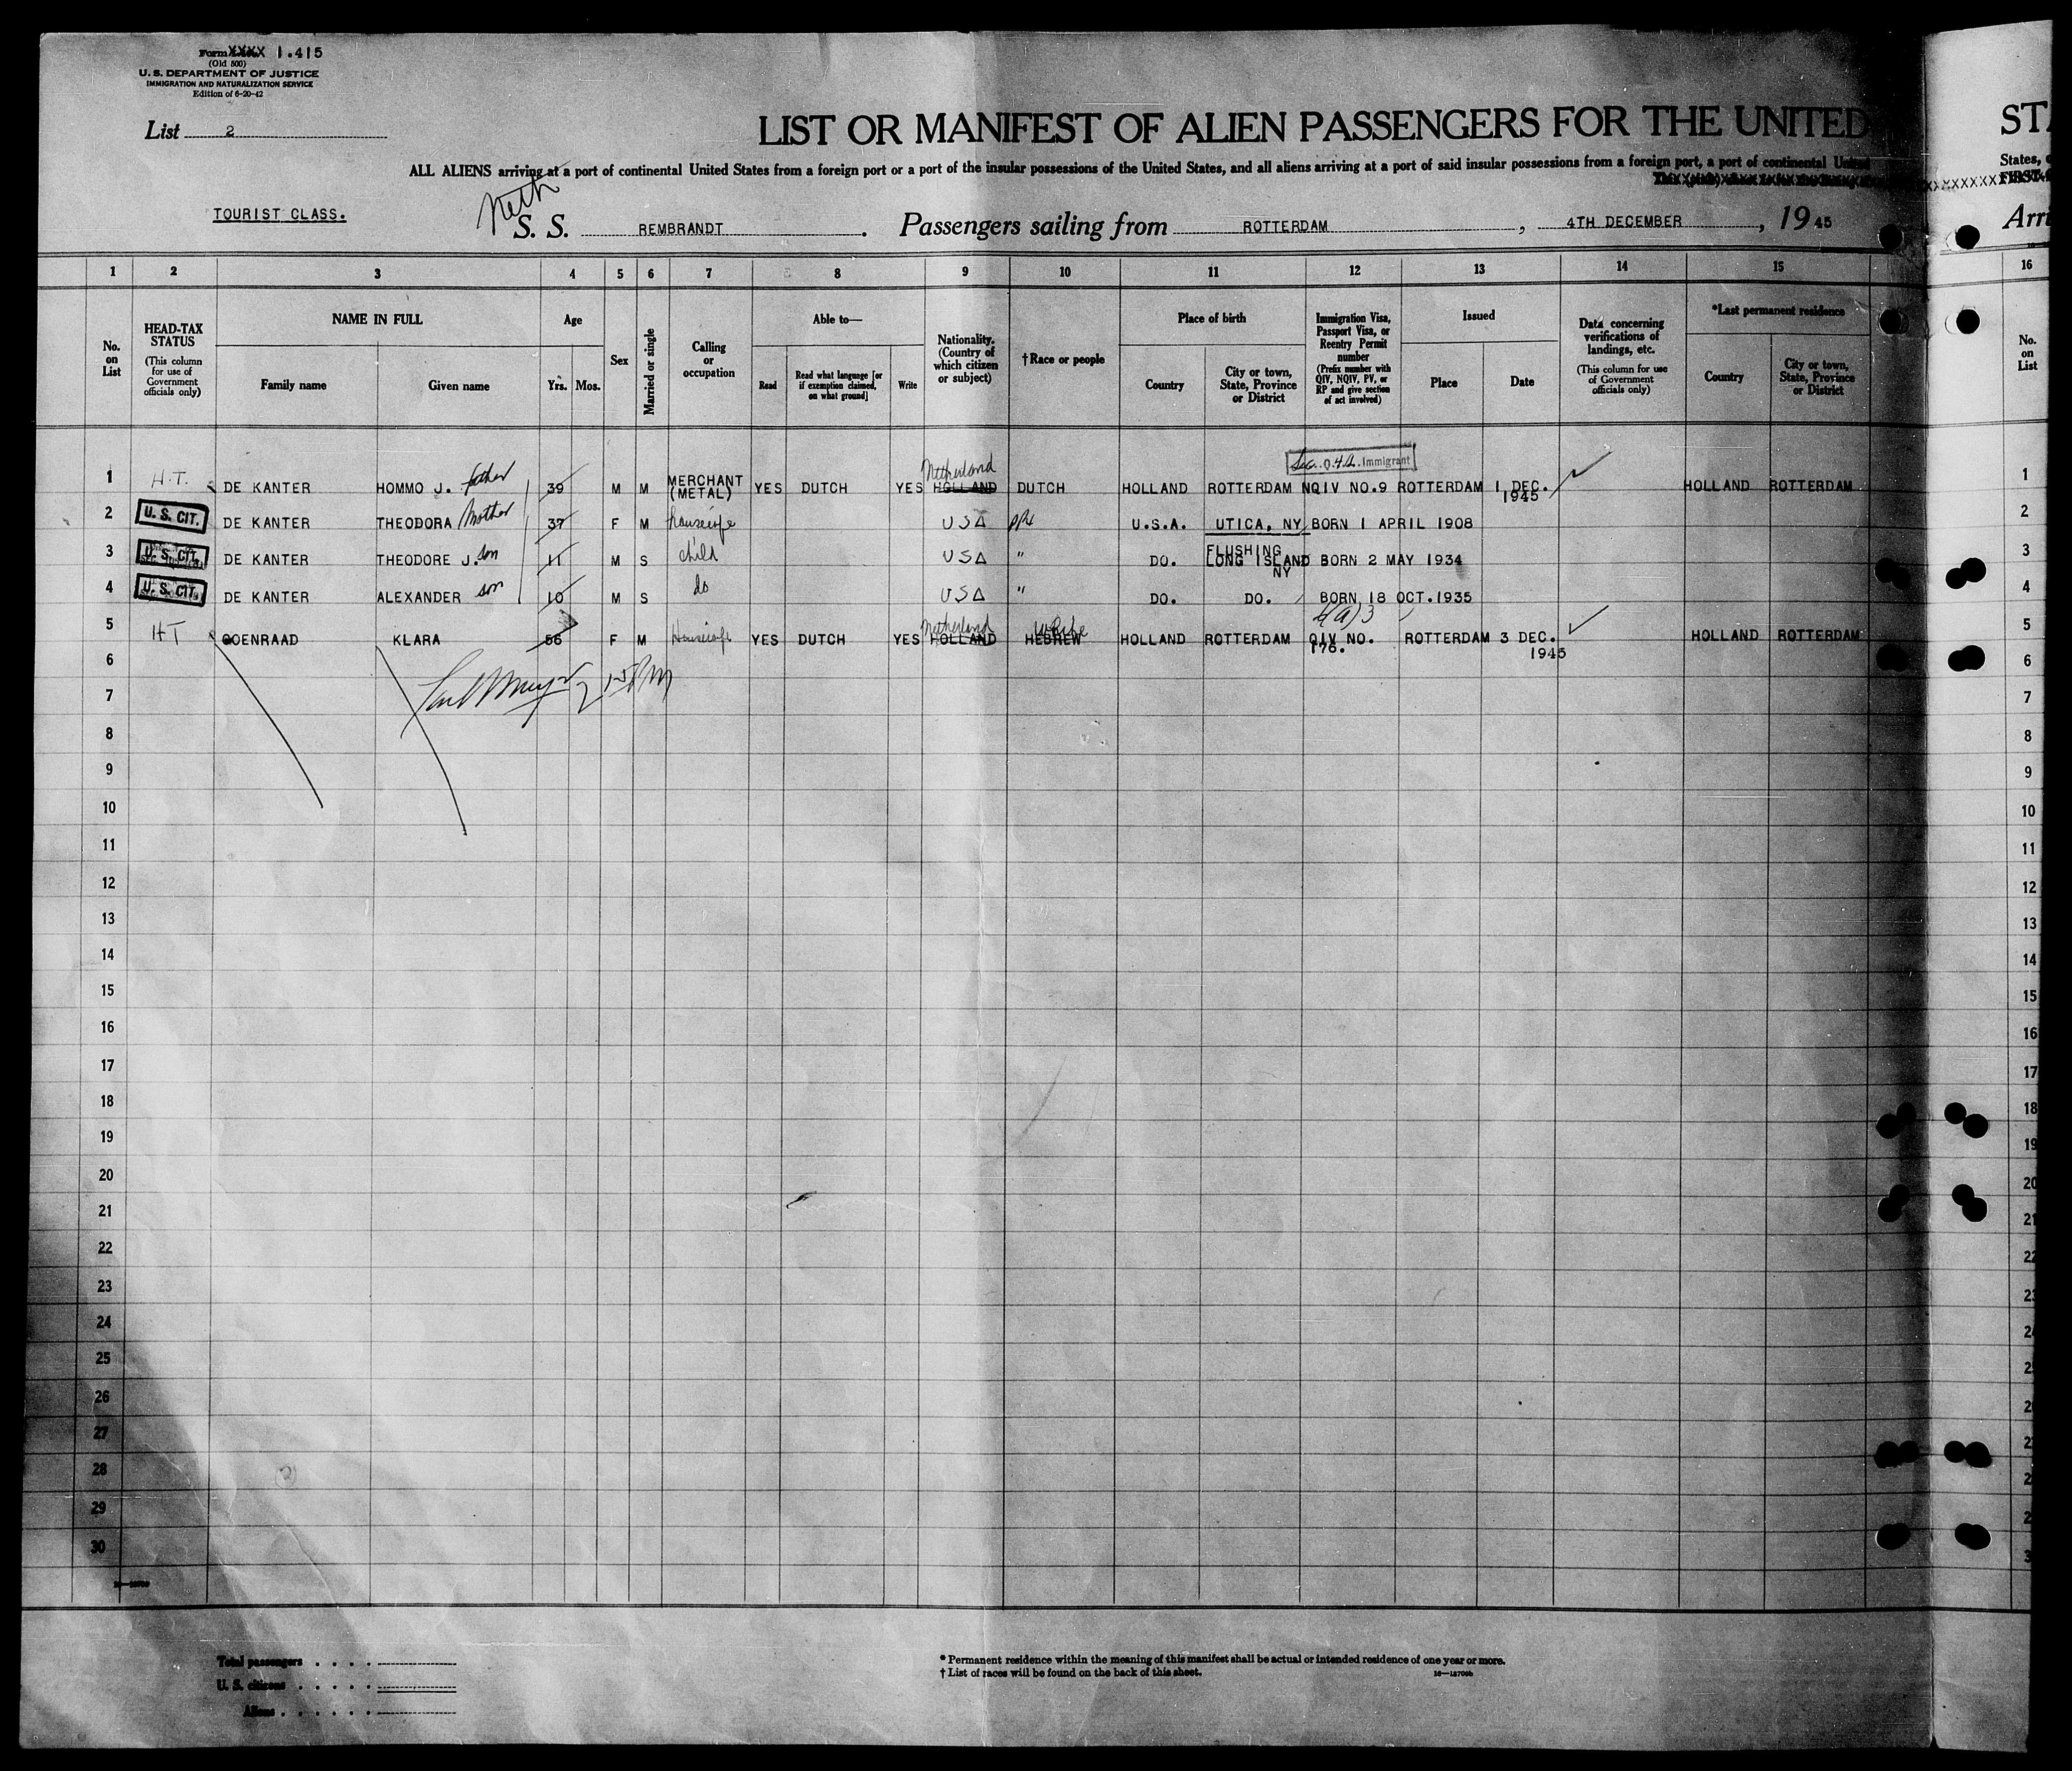 Form XXXX 1.415
(Old 500)
U. S. DEPARTMENT OF JUSTICE
IMMIGRATION AND NATURALIZATION SERVICE
Edition of 6-20-42
List 2
LIST OR MANIFEST OF ALIEN PASSENGERS FOR THE UNITED
STA
ALL ALIENS arriving at a port of continental United States from a foreign port or a port of the insular possessions of the United States, and all aliens arriving at a port of said insular possessions from a foreign port, a port of continental United
States,
FIRST-
TOURIST CLASS.
Neth
S. S. REMBRANDT. Passengers sailing from ROTTERDAM, 4TH DECEMBER, 1945
Arri
1 2 3 4 5 6 7 8 9 10 11 12 13 14 15 16
No. on List
HEAD-TAX STATUS
(This column for use of Government officials only)
NAME IN FULL
Family name
Given name
Age
Yrs.
Mos.
Sex
Married or single
Calling or occupation
Able to—
Read
Read what language [or if exemption claimed, on what ground]
Write
Nationality. (Country of which citizen or subject)
†Race or people
Place of birth
Country
City or town, State, Province or District
Immigration Visa, Passport Visa, or Reentry Permit number
(Prefix number with QIV, NQIV, PV, or RP and give section of act involved)
Issued
Place
Date
Data concerning verifications of landings, etc.
(This column for use of Government officials only)
*Last permanent residence
Country
City or town, State, Province or District
No. on List
Sec. 4 Immigrant
1 H.T. DE KANTER HOMMO J. father 39 M M MERCHANT (METAL) YES DUTCH YES HOLLAND Netherland DUTCH HOLLAND ROTTERDAM NQIV NO.9 ROTTERDAM 1 DEC. 1945 HOLLAND ROTTERDAM 1
2 U. S. CIT. DE KANTER THEODORA Mother 37 F M housewife USA U.S.A. UTICA, NY BORN 1 APRIL 1908 2
3 U. S. CIT. DE KANTER THEODORE J. son 11 M S child USA " DO. FLUSHING LONG ISLAND NY BORN 2 MAY 1934 3
4 U. S. CIT. DE KANTER ALEXANDER son 10 M S do USA " DO. DO. BORN 18 OCT.1935 4
4(a)3
5 HT COENRAAD KLARA 56 F M Housewife YES DUTCH YES HOLLAND Netherland HEBREW White HOLLAND ROTTERDAM QIV NO. 176. ROTTERDAM 3 DEC. 1945 HOLLAND ROTTERDAM 5
6 6
7 7
8 8
9 9
10 10
11 11
12 12
13 13
14 14
15 15
16 16
17 17
18 18
19 19
20 20
21 21
22 22
23
24
25
26
27
28
29
30
Total passengers . . . .
U. S. citizens . . . . .
Aliens . . . . . .
* Permanent residence within the meaning of this manifest shall be actual or intended residence of one year or more.
† List of races will be found on the back of this sheet.